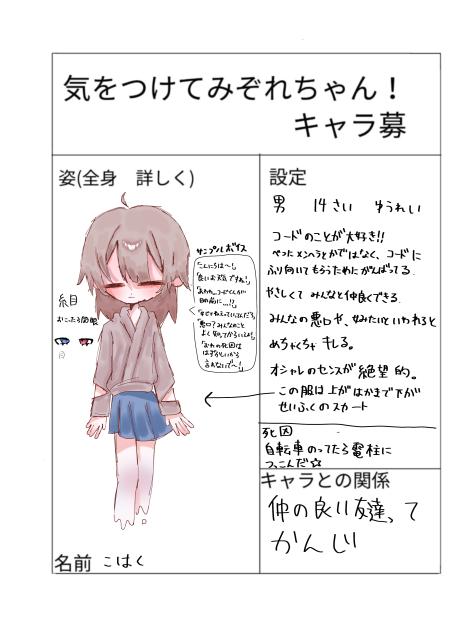 気をつけてみぞれちゃん！
キャラ募
姿(全身　詳しく)
設定
男　14さい　ゆうれい
コードのことが大好き!!
べつにメンヘラとかではなく、コードに
ふり向いてもらうためにがんばってる.
やさしくて みんなと仲良くできる.
みんなの悪口や、女みたいといわれると
めちゃくちゃ キレる。
オシャレのセンスが絶望的。
この服は上がはかまで下が
せいふくのスカート
死因
自転車のってたら電柱に
つっこんだ☆
キャラとの関係
仲の良い友達って
かんじ
サンプルボイス
「こんにちは〜!」
「良いお天気ですね!」
目の前に...!?」
「悪口?みんなのこと
よく知ってからいえよ!」
「おれの死因は
はずかしいから
言わないで〜!」
糸目
おこったら開眼
名前 こはく